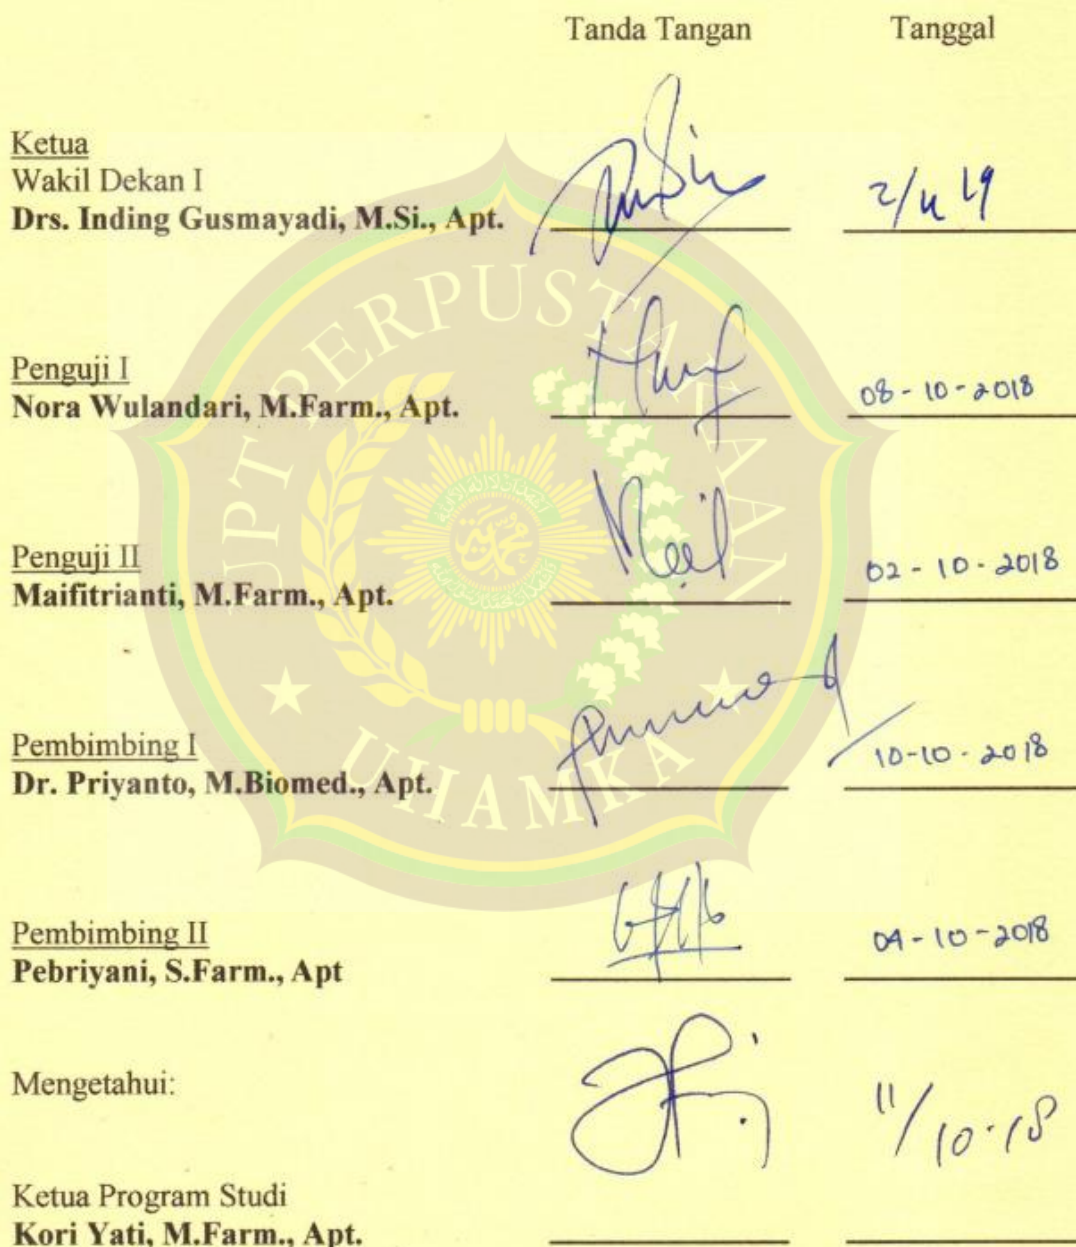 Tanda Tangan Tanggal
Ketua
Wakil Dekan I
Drs. Inding Gusmayadi, M.Si., Apt.
Penguji I
Nora Wulandari, M.Farm., Apt. 08-10-2018
Penguji II
Maifitrianti, M.Farm., Apt. 02-10-2018
Pembimbing I
Dr. Priyanto, M.Biomed., Apt. 10-10-2018
Pembimbing II
Pebriyani, S.Farm., Apt 04-10-2018
Mengetahui:
11/10-18
Ketua Program Studi
Kori Yati, M.Farm., Apt.
UPT PERPUSTAKAAN
UHAMKA